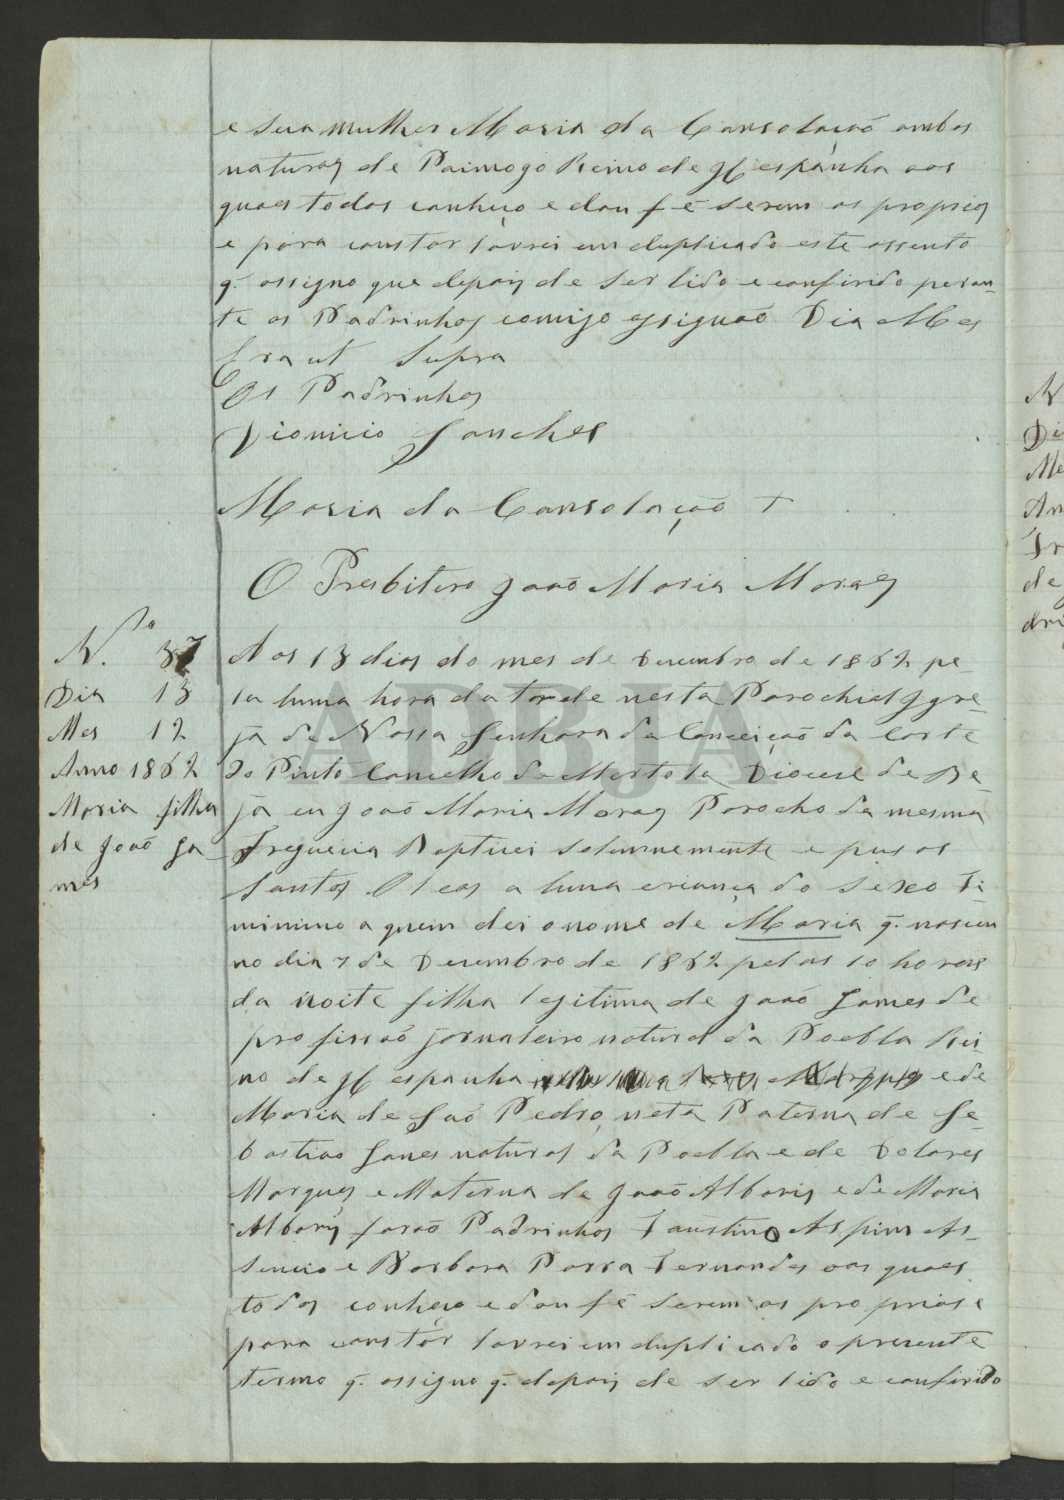 e sua mulher Maria da Consolaçaõ ambos
naturaes de Paimogo Reino de Hespanha aos
quaes todos conheço e dou fé serem os proprios
e para constar lavrei em duplicado este assento
q. assigno que depois de ser lido e confirido peran-
te os Padrinhos comigo assignaõ Dia Mes
Era ut supra
Os Padrinhos
Dionicio Sanches
Maria da Consolaçaõ +
O Presbitero Joaõ Maria Moraes
N.º 37
Dia 13
Mes 12
Anno 1862
Maria filha
de Joaõ Go-
mes
Aos 13 dias do mes de Dezembro de 1862 pe-
la huma hora da tarde nesta Parochial Igre-
ja de Nossa Senhora da Conceiçaõ da Corte
do Pinto Concelho de Mertola Diocese de Be-
ja eu Joaõ Maria Moraes Parocho da mesma
Freguezia Baptizei solemnemente e puz os
Santos Oleos a huma criança do sexo Fi-
minino a quem dei o nome de Maria q. nasceu
no dia 7 de Dezembro de 1862 pelas 10 horas
da noite filha legitima de Joaõ Gomes de
profissaõ jornaleiro natural da Puebla Rei-
no de Hespanha e de
Maria de Saõ Pedro, neta Paterna de Se-
bastiao Gomes natural da Puebla e de Dolores
Marques e Materna de Joaõ Alboris e de Maria
Alboris foraõ Padrinhos Faustino As-
sencio e Barbara Parra Fernandes aos quaes
todos conheço e dou fé serem os proprios e
para constar lavrei em duplicado o prezente
termo q. assigno q. depois de ser lido e confirido
ADBJA